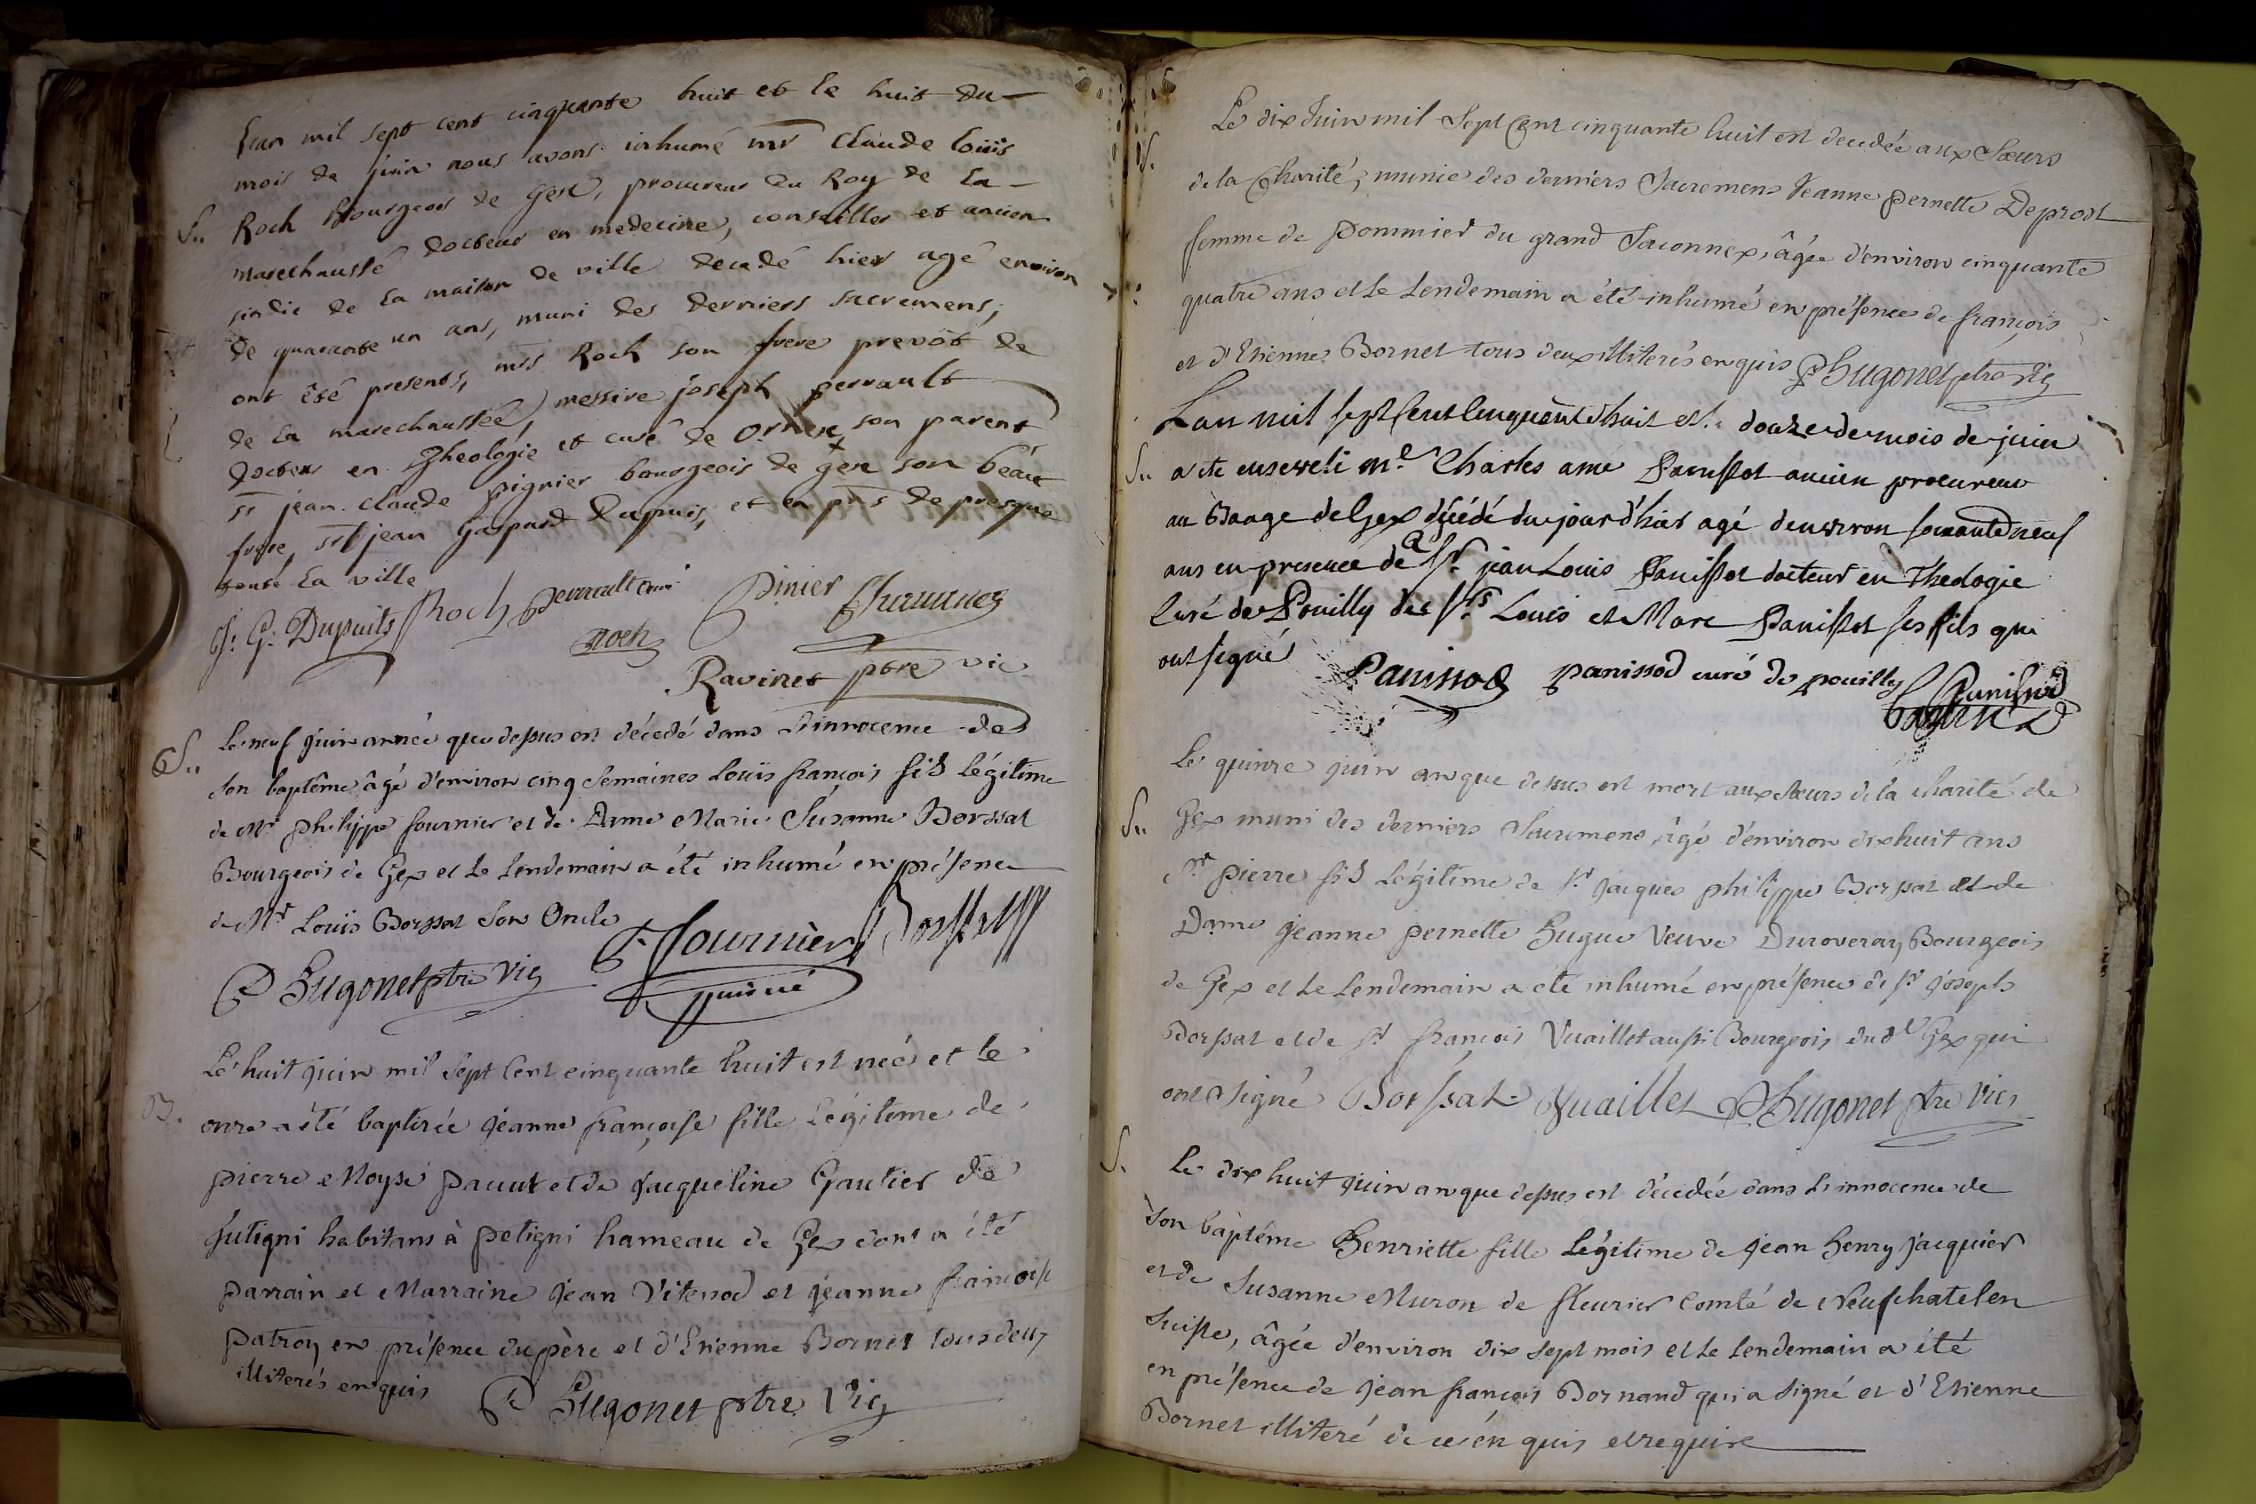 L'an mil sept cent cinquante huit et le huit du
mois de juin nous avons inhumé mr Claude Loüis
S.. Roch Bourgeois de Gex, procureur du Roy de la
marechaussé docteur en medecine, conseiller et ancien
sindic de la maison de ville decedé hier agé environ
de quarante un ans, muni des derniers sacremens;
ont été presents, mrs Roch son frere prevôt de
de la marechaussée, messire joseph perrault
docteur en Theologie et curé de Ornex son parent
sr jean Claude pignier bourgeois de gex son beau
frere, sr jean gaspard Dupuis, et en prs de presque
toute la ville
J: G: Dupuits Roch Perrault curé Pinier
Roch
Ravinet ptre vic
S.. Le neuf juin année que dessus est décedé dans l'innocence de
son baptême âgé d'environ cinq semaines Loüis françois fils légitime
de Mr philippe fournier et de Dame Marie Susanne Borssat
Bourgeois de Gex et le lendemain a été inhumé en présence
de Mr Loüis Borssat son Oncle
P Hugonet ptre vic F Fournier Borssat
B. Le huit juin mil sept cent cinquante huit est née et le
onze a été baptisée jeanne françoise fille légitime de
pierre Moyse et de jacqueline Gautier de
habitans à petigni hameau de Gex dont a été
parrain et Marraine jean Vitenod et jeanne françoise
patroy en présence du père et d'Etienne Bornet tous deux
illiterés enquis P Hugonet ptre Vic
S. Le dix Juin mil Sept Cent cinquante huit est decedée aux Sœurs
de la Charité, munie des derniers Sacremens Jeanne pernette Deprost
femme de pommier du grand Saconnex, âgée d'environ cinquante
quatre ans et le lendemain a été inhumé en présence de françois
et d'Etienne Bornet tous deux illiterés enquis P Hugonet ptre vic
Lan mil sept Cent Cinquante huit et le douze de mois de juin
S.. a ete enseveli me Charles ame Panissot ancien procureur
au Baage de Gex décédé du jour d'hier agé d'environ soixante neuf
ans en presence de Sr jean Louis Panissot docteur en Theologie
Curé de Pouilly des Srs Louis et Marc Panissot ses fils qui
ont signé Panissod panissod curé de pouilly
Le quinze juin an que dessus est mort aux Sœurs de la charité de
S.. Gex muni des derniers Sacremens, âgé d'environ dix huit ans
Sr pierre fils Légitime de Sr jacques philippe Borssat et de
Dame jeanne pernette Hugue Veuve Duroveray Bourgeois
de Gex et le lendemain a été inhumé en présence de Sr joseph
Borssat et de Sr françois Vuaillet aussi Bourgeois dud Gex qui
ont signé Borssat Vuaillet P Hugonet ptre vic
S. Le dix huit juin an que dessus est décedée dans l'innocence de
son baptême Henriette fille Légitime de jean henry jacquier
et de Susanne Muron de fleurier Comté de Neufchatel en
Suisse, âgée d'environ dix sept mois et le lendemain a été
en présence de jean françois Bornand qui a signé et d'Etienne
Bornet illiteré de ce enquis et requise